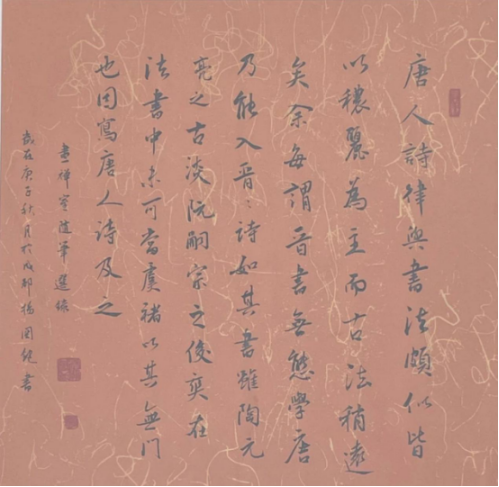 唐人詩律與書法頗似皆
以穠麗為主而古法稍遠
矣余每謂晉書無態學唐
乃能入晉晉詩如其書雖陶元
亮之古淡阮嗣宗之俊爽在
法書中未可當虞褚以其無門
也因寫唐人詩及之
畫禪室隨筆選錄
歲在庚子秋月於成都楊國
書